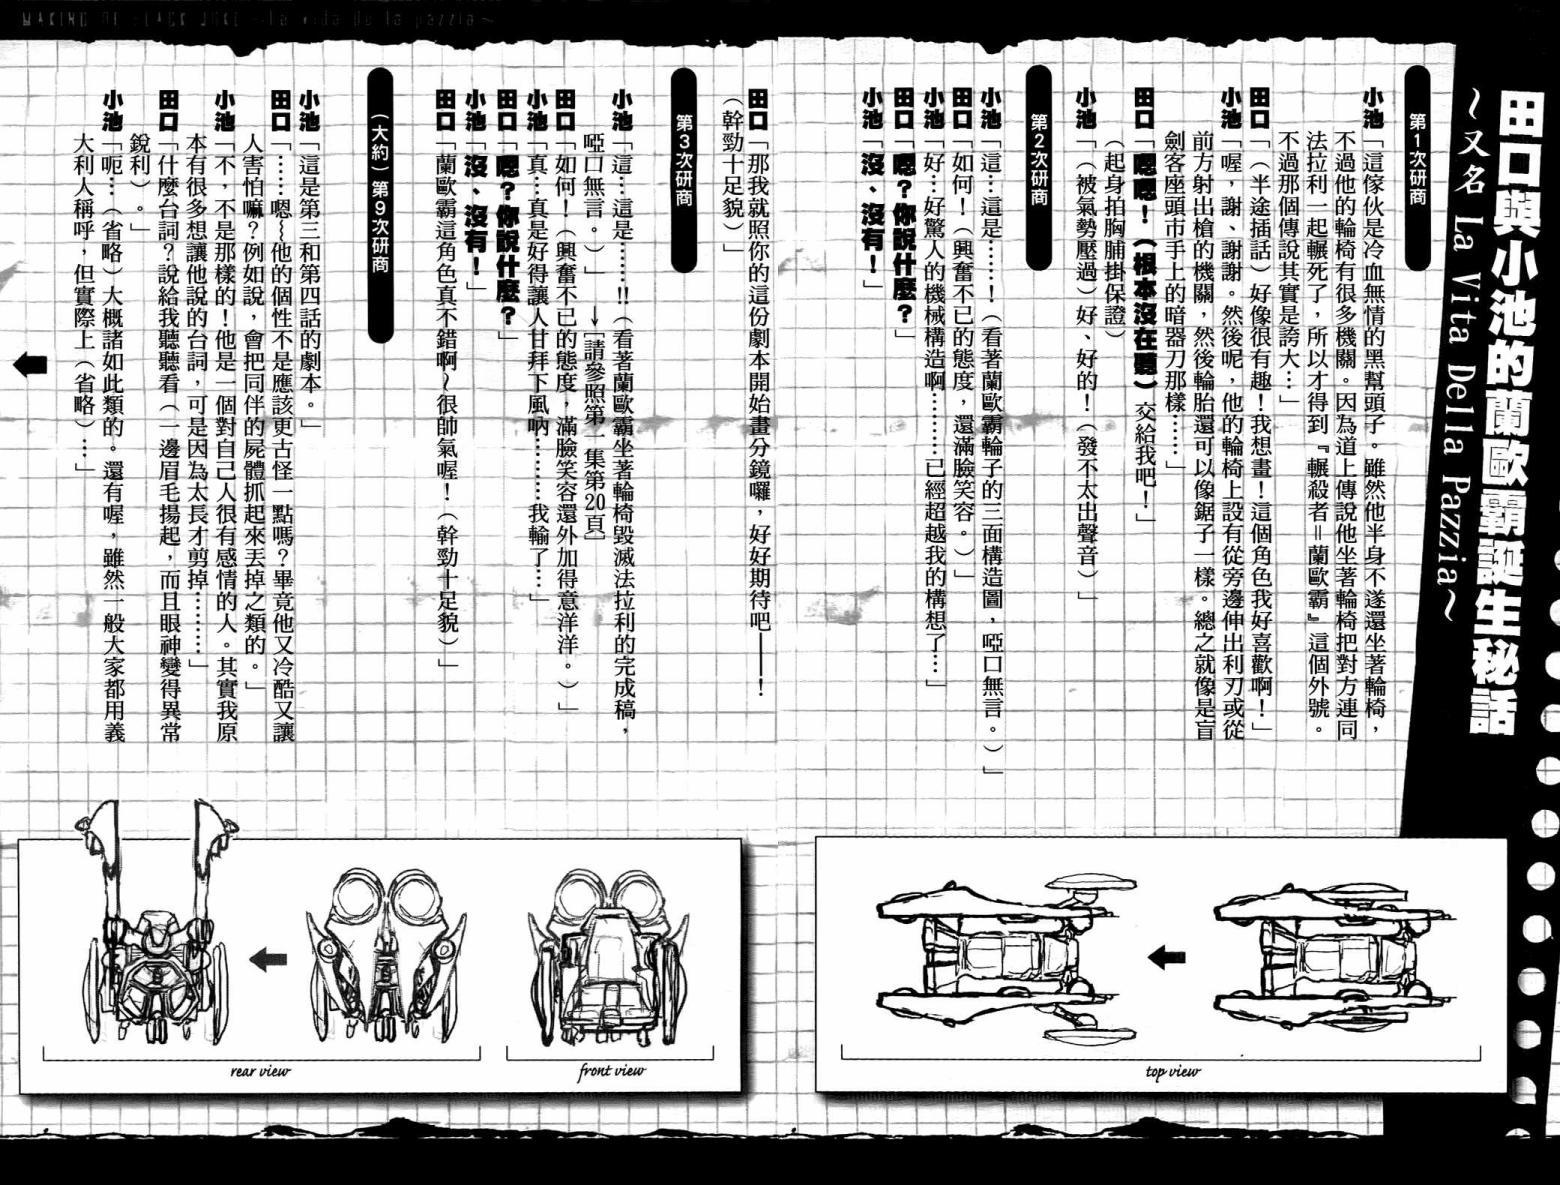 MAKING OF BLACK JOKE ~La vida de la pazzia~
田口與小池的蘭歐霸誕生秘話
~又名 La Vita Della Pazzia~
第1次研商
小池「這傢伙是冷血無情的黑幫頭子。雖然他半身不遂還坐著輪椅，
不過他的輪椅有很多機關。因為道上傳說他坐著輪椅把對方連同
法拉利一起輾死了，所以才得到『輾殺者＝蘭歐霸』這個外號。
不過那個傳說其實是誇大…」
田口「（半途插話）好像很有趣！我想畫！這個角色我好喜歡啊！」
小池「喔，謝、謝謝。然後呢，他的輪椅上設有從旁邊伸出利刃或從
前方射出槍的機關，然後輪胎還可以像鋸子一樣。總之就像是盲
劍客座頭市手上的暗器刀那樣……」
田口「嗯嗯！（根本沒在聽）交給我吧！」
（起身拍胸脯掛保證）
小池「（被氣勢壓過）好、好的！（發不太出聲音）」
第2次研商
小池「這…這是……！（看著蘭歐霸輪子的三面構造圖，啞口無言。）」
田口「如何！（興奮不已的態度，還滿臉笑容。）」
小池「好…好驚人的機械構造啊………已經超越我的構想了…」
田口「嗯？你說什麼？」
小池「沒、沒有！」
田口「那我就照你的這份劇本開始畫分鏡囉，好好期待吧——！
（幹勁十足貌）」
第3次研商
小池「這…這是……!!（看著蘭歐霸坐著輪椅毀滅法拉利的完成稿，
啞口無言。）」 →［請參照第一集第20頁］
田口「如何！（興奮不已的態度，滿臉笑容還外加得意洋洋。）」
小池「真…真是好得讓人甘拜下風吶………我輸了…」
田口「嗯？你說什麼？」
小池「沒、沒有！」
田口「蘭歐霸這角色真不錯啊~很帥氣喔！（幹勁十足貌）」
（大約）第9次研商
小池「這是第三和第四話的劇本。」
田口「……嗯~他的個性不是應該更古怪一點嗎？畢竟他又冷酷又讓
人害怕嘛？例如說，會把同伴的屍體抓起來丟掉之類的。」
小池「不，不是那樣的！他是一個對自己人很有感情的人。其實我原
本有很多想讓他說的台詞，可是因為太長才剪掉………」
田口「什麼台詞？說給我聽聽看（一邊眉毛揚起，而且眼神變得異常
銳利）。」
小池「呃…（省略）大概諸如此類的。還有喔，雖然一般大家都用義
大利人稱呼，但實際上（省略）…」
top view
front view
rear view